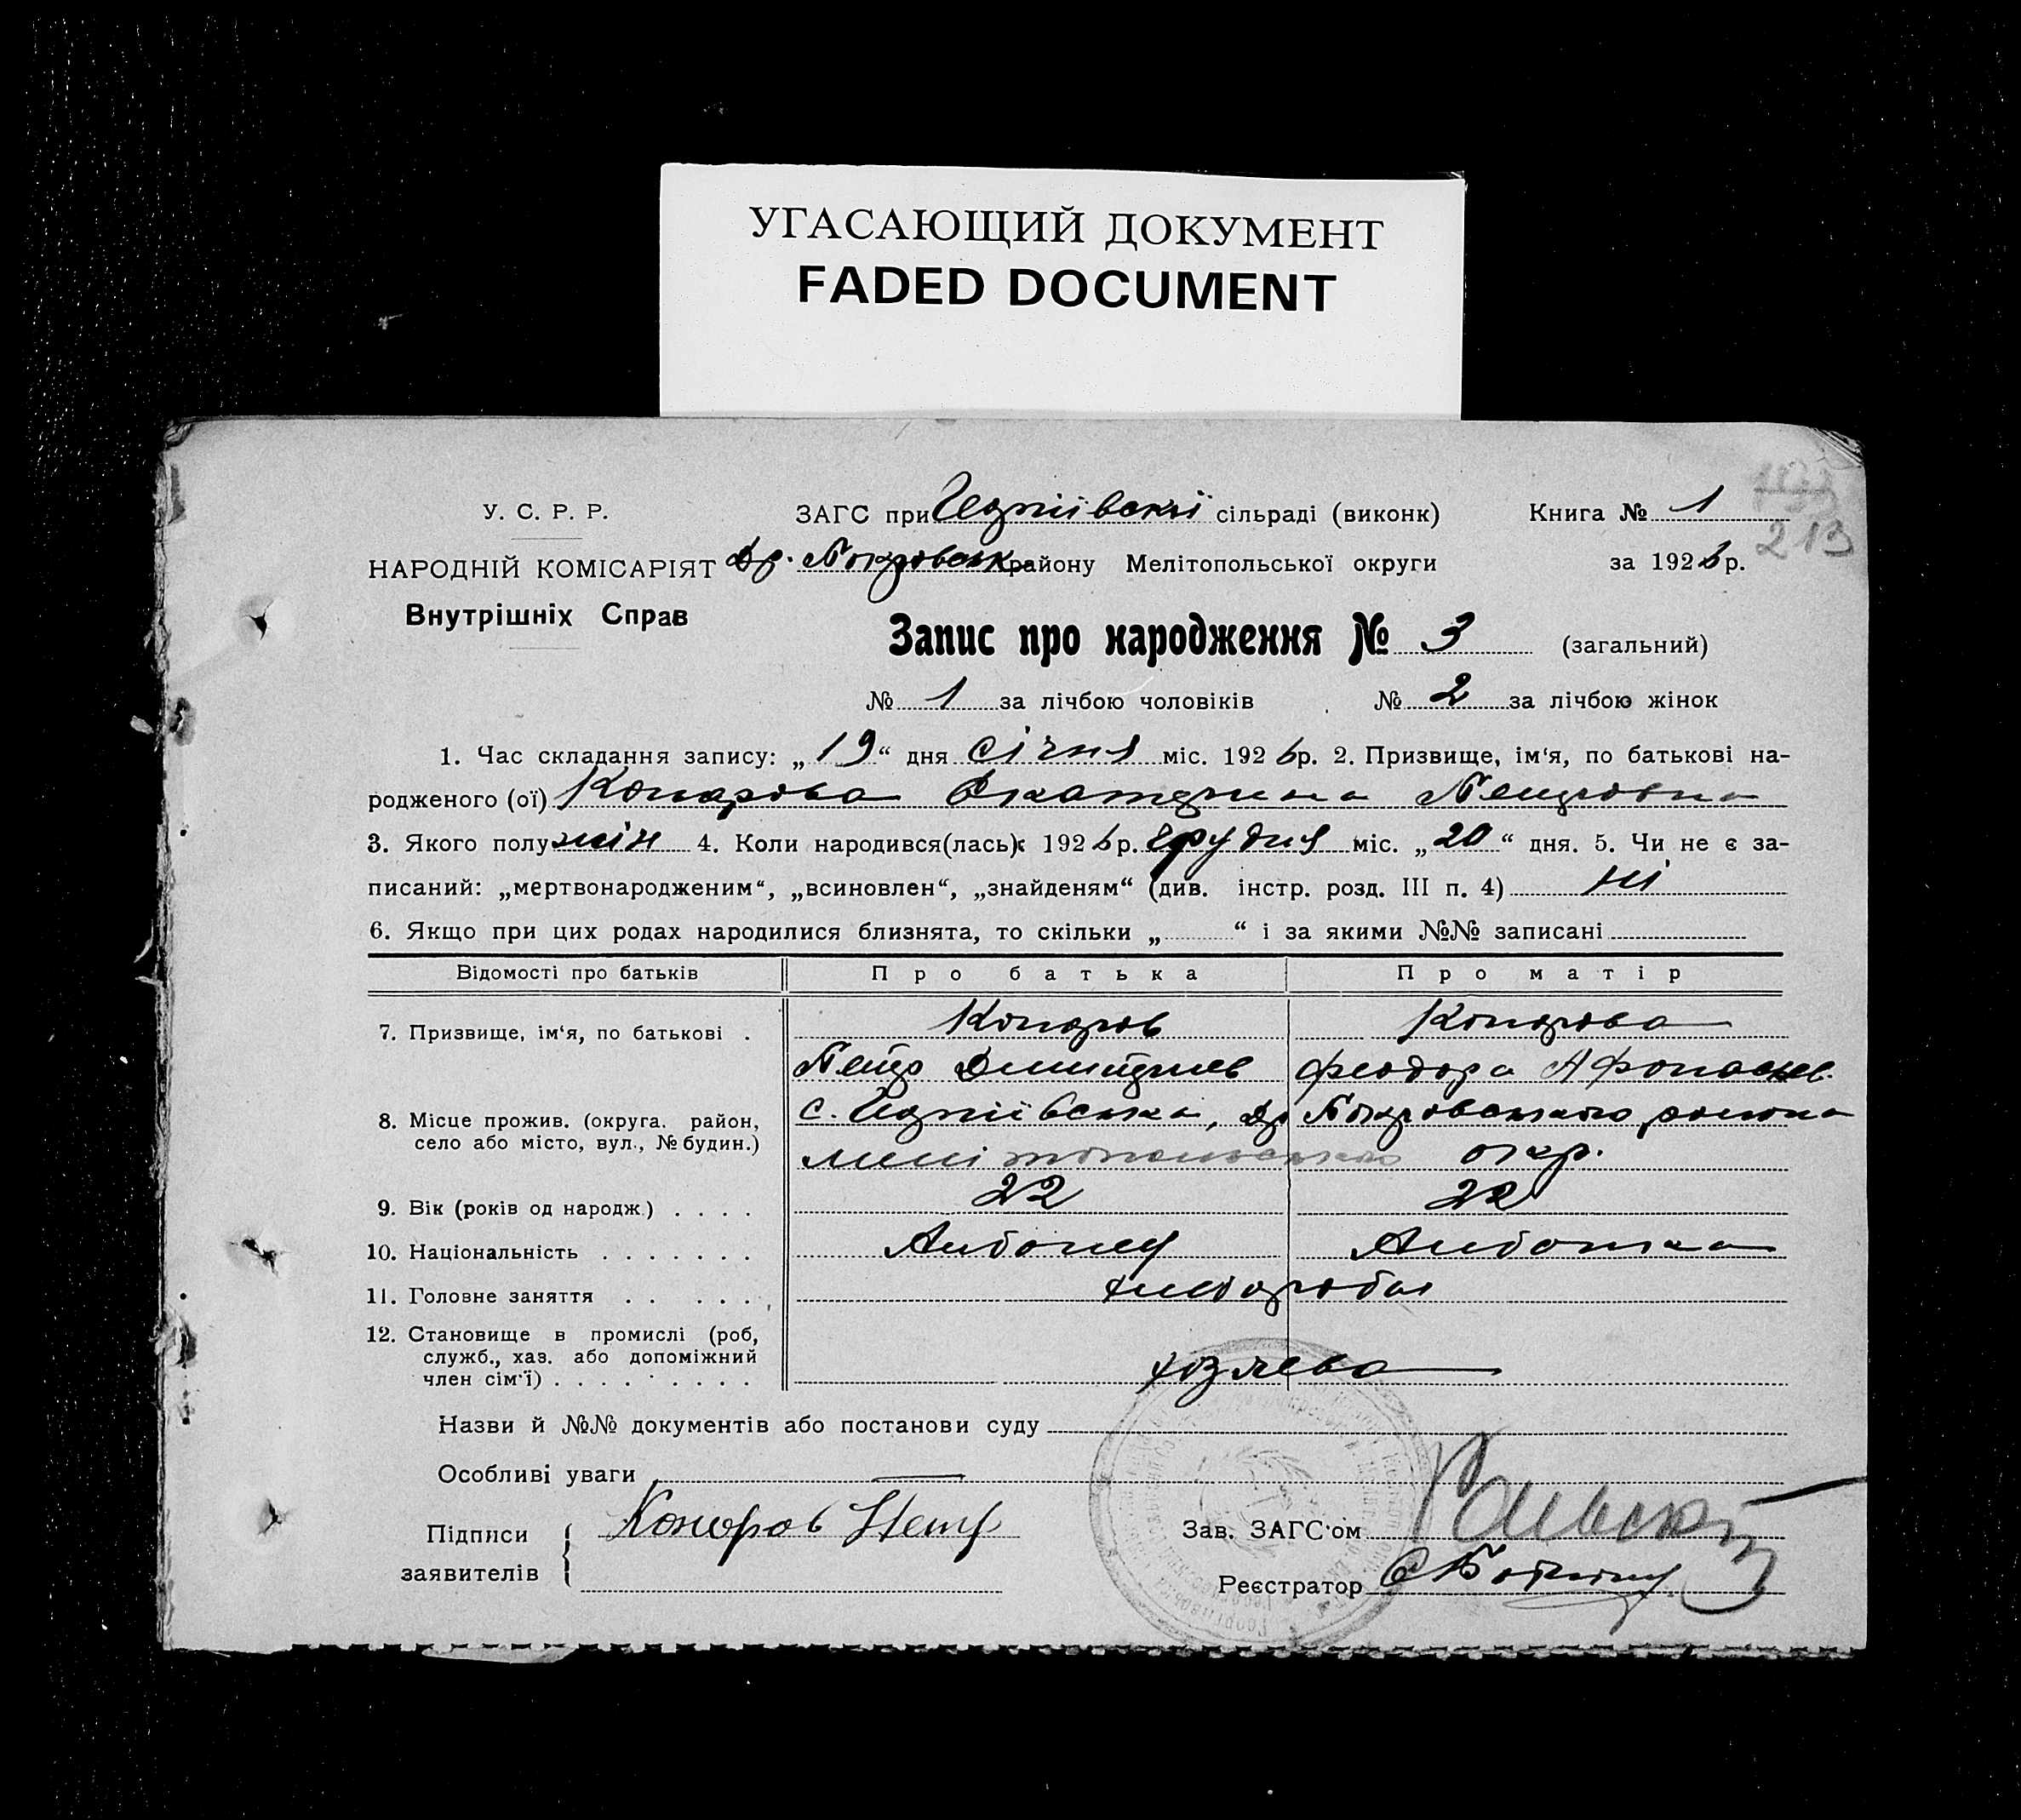 УГАСАЮЩИЙ ДОКУМЕНТ
FADED DOCUMENT
У. С. Р. Р.
НАРОДНІЙ КОМІСАРІЯТ
Внутрішніх Справ
ЗАГС при сільраді (виконк)
Книга № 1
213
Др. Покровськ району Мелітопольської округи
за 1926 р.
Запис про народження № 3 (загальний)
№ 1 за лічбою чоловіків № 2 за лічбою жінок
1. Час складання запису: „19“ дня січня міс. 1926 р. 2. Призвище, ім‘я, по батькові на-
родженого (ої) Конорова Екатерина Петровна
3. Якого полу жін 4. Коли народився(лась): 1926 р. грудня міс. „20“ дня. 5. Чи не є за-
писаний: „мертвонародженим“, „всиновлен“, „знайденям“ (див. інстр. розд. III п. 4) ні
6. Якщо при цих родах народилися близнята, то скільки „ “ і за якими №№ записані
Відомості про батьків Про батька Про матір
7. Призвище, ім‘я, по батькові . Коноров Конорова
Петр Дмитриев Феодора Афонасьев.
8. Місце прожив. (округа. район, село або місто, вул., № будин.) с. Др Покровського району
Мелітопольського окр.
9. Вік (років од народж.) . . . . 22 22
10. Національність . . . . . . . Албонец Албонка
11. Головне заняття . . . . . . хлібороби
12. Становище в промислі (роб, служб., хаз. або допоміжний член сім‘ї) . . . . . . . . . хозяева
Назви й №№ документів або постанови суду
Особливі уваги —
Підписи заявителів { Коноров Петр
Зав. ЗАГС‘ом
Реєстратор